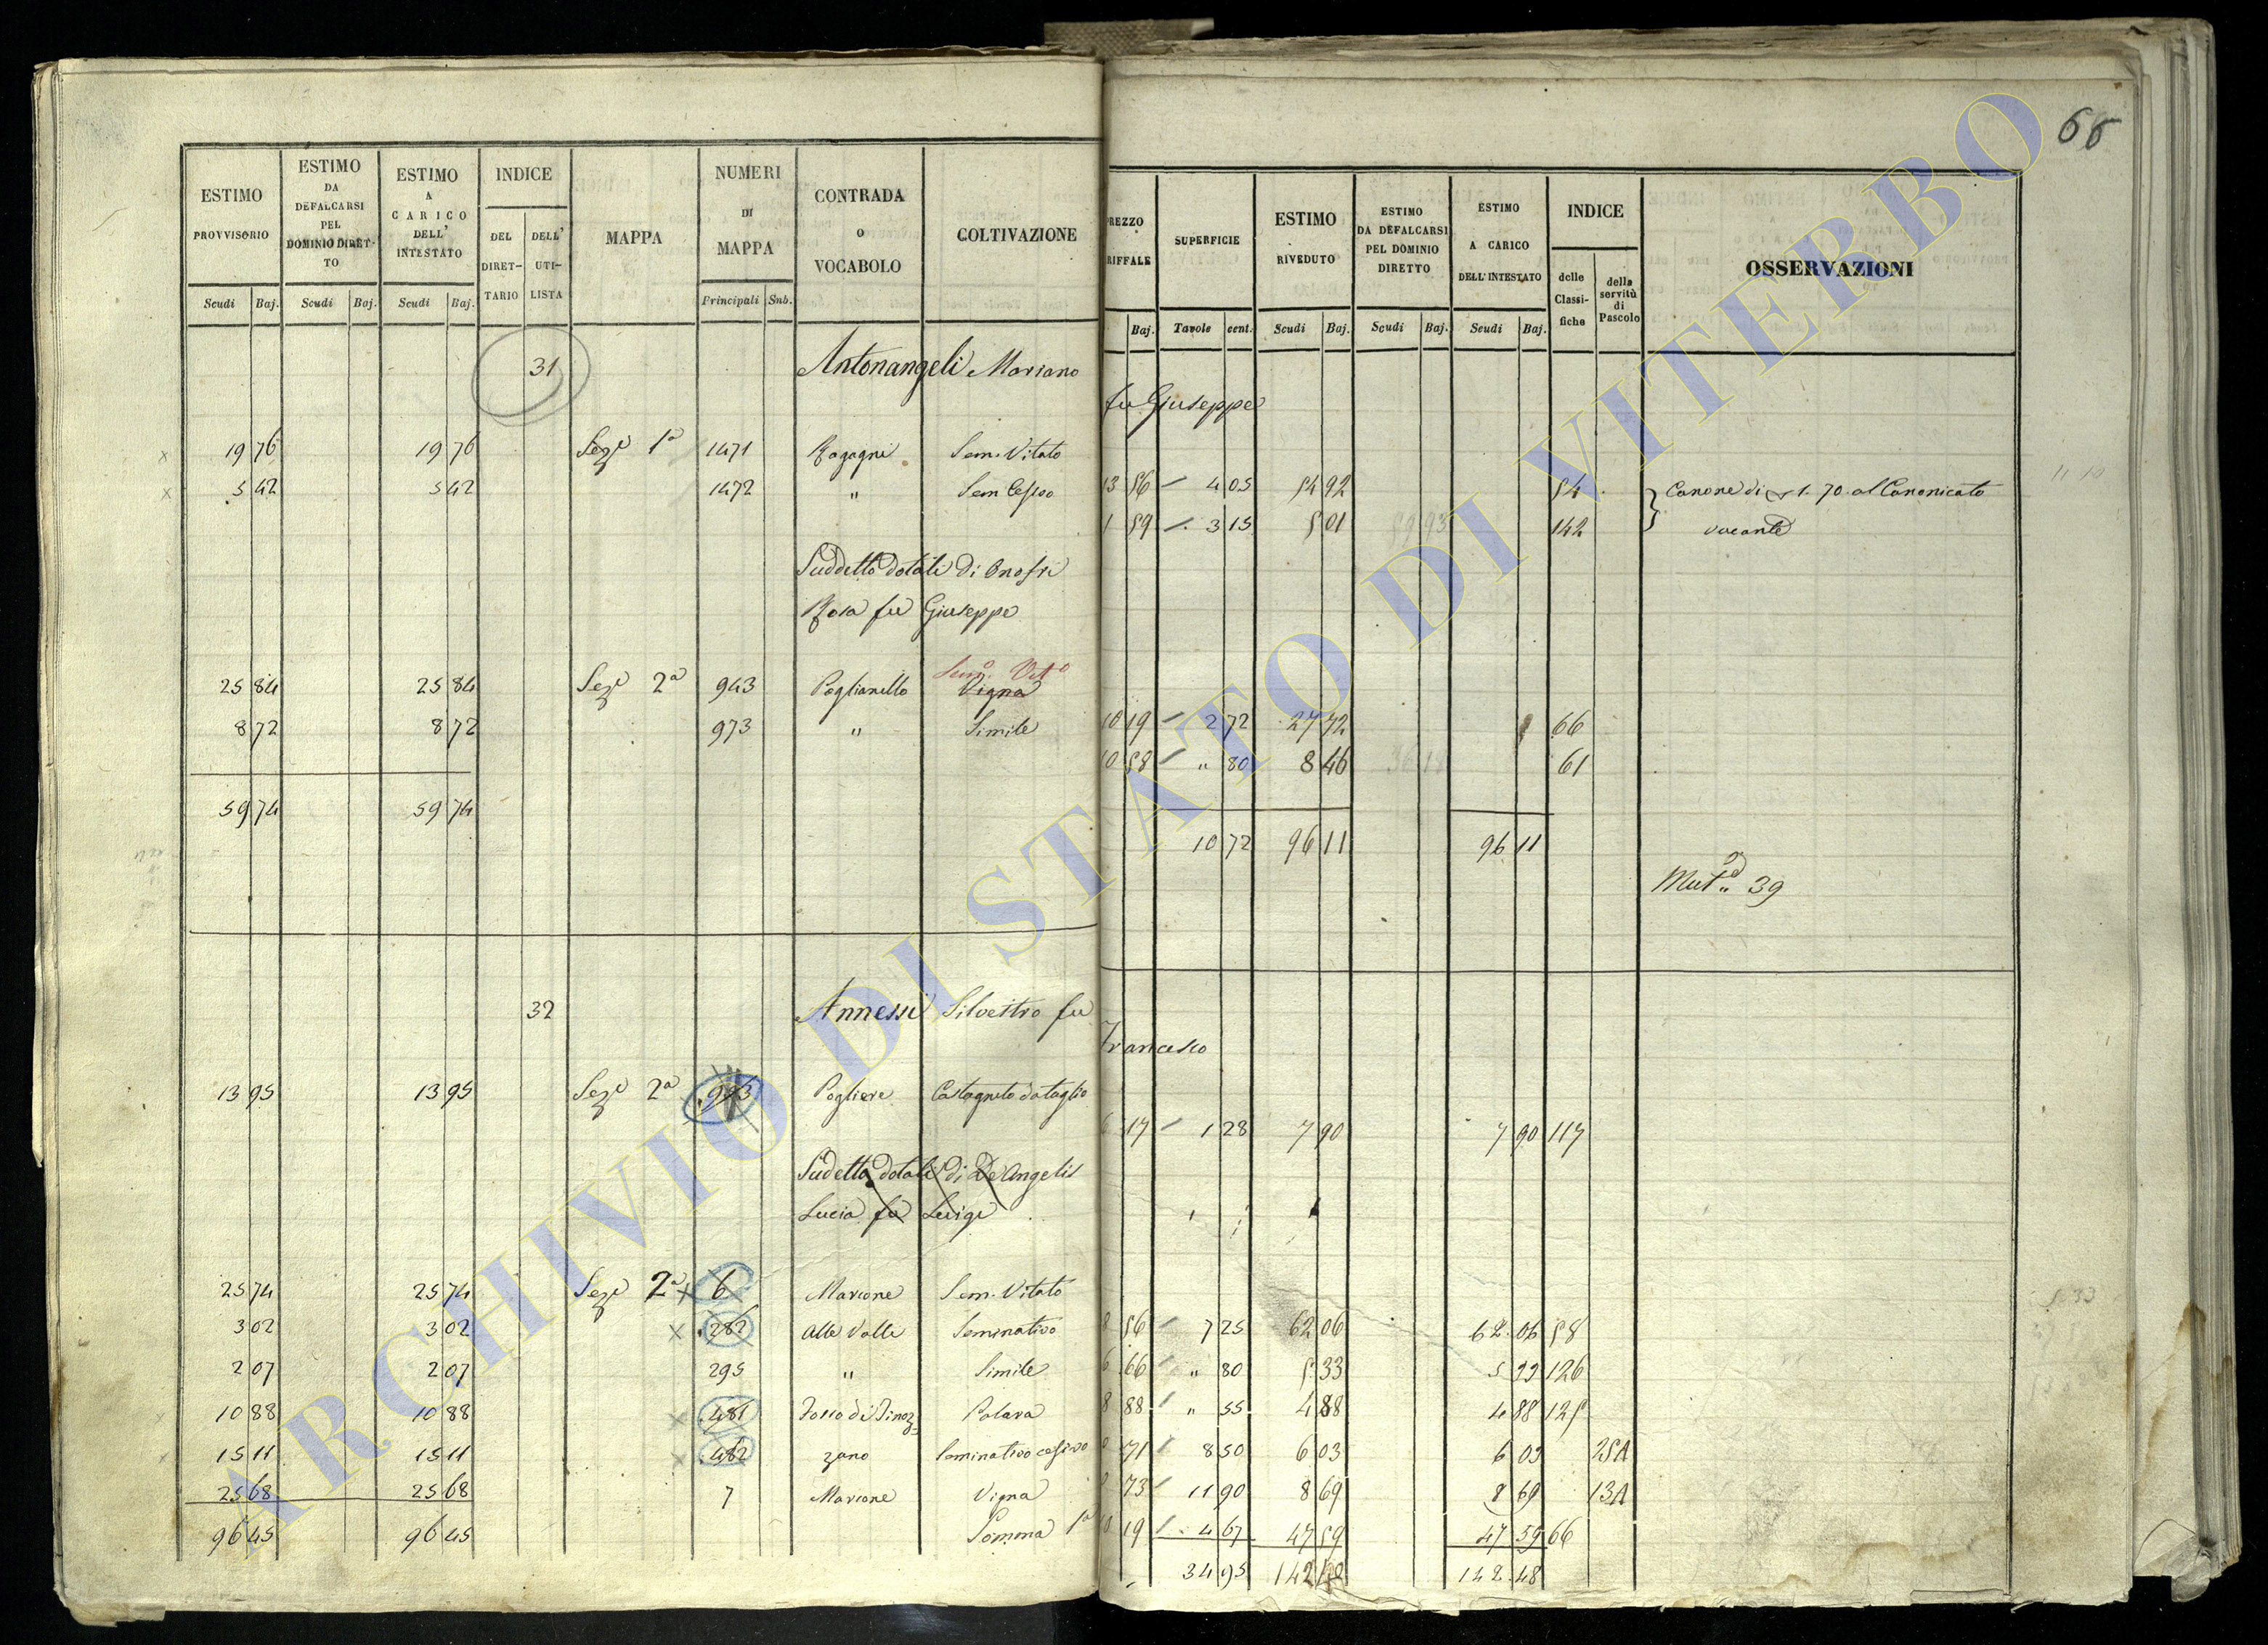 66
ESTIMO PROVVISORIO | ESTIMO DA DEFALCARSI PEL DOMINIO DIRETTO | ESTIMO A CARICO DELL' INTESTATO | INDICE | MAPPA | NUMERI DI MAPPA | CONTRADA O VOCABOLO | COLTIVAZIONE | REZZO RIFFALE | SUPERFICIE | ESTIMO RIVEDUTO | ESTIMO DA DEFALCARSI PEL DOMINIO DIRETTO | ESTIMO A CARICO DELL' INTESTATO | INDICE | OSSERVAZIONI
DEL DIRET-TARIO | DELL' UTI-LISTA | delle Classi-fiche | della servitù di Pascolo
Scudi | Baj. | Scudi | Baj. | Scudi | Baj. | Principali | Sub. | Baj. | Tavole | cent. | Scudi | Baj. | Scudi | Baj. | Scudi | Baj.
31 Antonangeli Mariano fu Giuseppe
19 76 | 19 76 | Sez.e 1a | 1471 | Ragagni | Sem. Vitato | 13 56 | 4 05 | 54 92 | 54 | Canone di 1.70 al Canonicato
5 42 | 5 42 | 1472 | " | Sem Cesivo | 1 59 | 3 15 | 5 01 | 142 | vacante
Suddetto dotali di Onofri
Rosa fu Giuseppe
Sem.o Vit.o
25 84 | 25 84 | Sez.e 2a | 943 | Poglianello | Vigna | 10 19 | 2 72 | 27 72 | 66
8 72 | 8 72 | 973 | " | Simile | 10 58 | " 80 | 8 46 | 61
59 74 | 59 74 | 10 72 | 96 11 | 96 11
Mut.a 39
32 Annessi Silvestro fu Francesco
13 95 | 13 95 | Sez.e 2a | Pogliere | Castagneto da taglio | 6 17 | 1 28 | 7 90 | 7 90 | 117
Sudetto dotali di De Angelis
Lucia fu Luigi
25 74 | 25 74 | Sez.e 2a | 6 | Marcone | Sem. Vitato | 8 56 | 7 25 | 62 06 | 62 06 | 58
3 02 | 3 02 | 282 | alle Valle | Seminativo | 6 66 | " 80 | 5 33 | 5 33 | 126
2 07 | 2 07 | 295 | " | Simile | 8 88 | " 55 | 4 88 | 4 88 | 125
10 88 | 10 88 | 481 | Fosso di Pinoz= | Polara | 71 | 8 50 | 6 03 | 6 03 | 25A
15 11 | 15 11 | 482 | zano | Seminativo cesivo | 73 | 11 90 | 8 69 | 8 69 | 13A
25 68 | 25 68 | 7 | Marcone | Vigna | 10 19 | 4 67 | 47 59 | 47 59 | 66
96 45 | 96 45 | Somma 1a | 34 95 | 142 48 | 142 48
ARCHIVIO DI STATO DI VITERBO